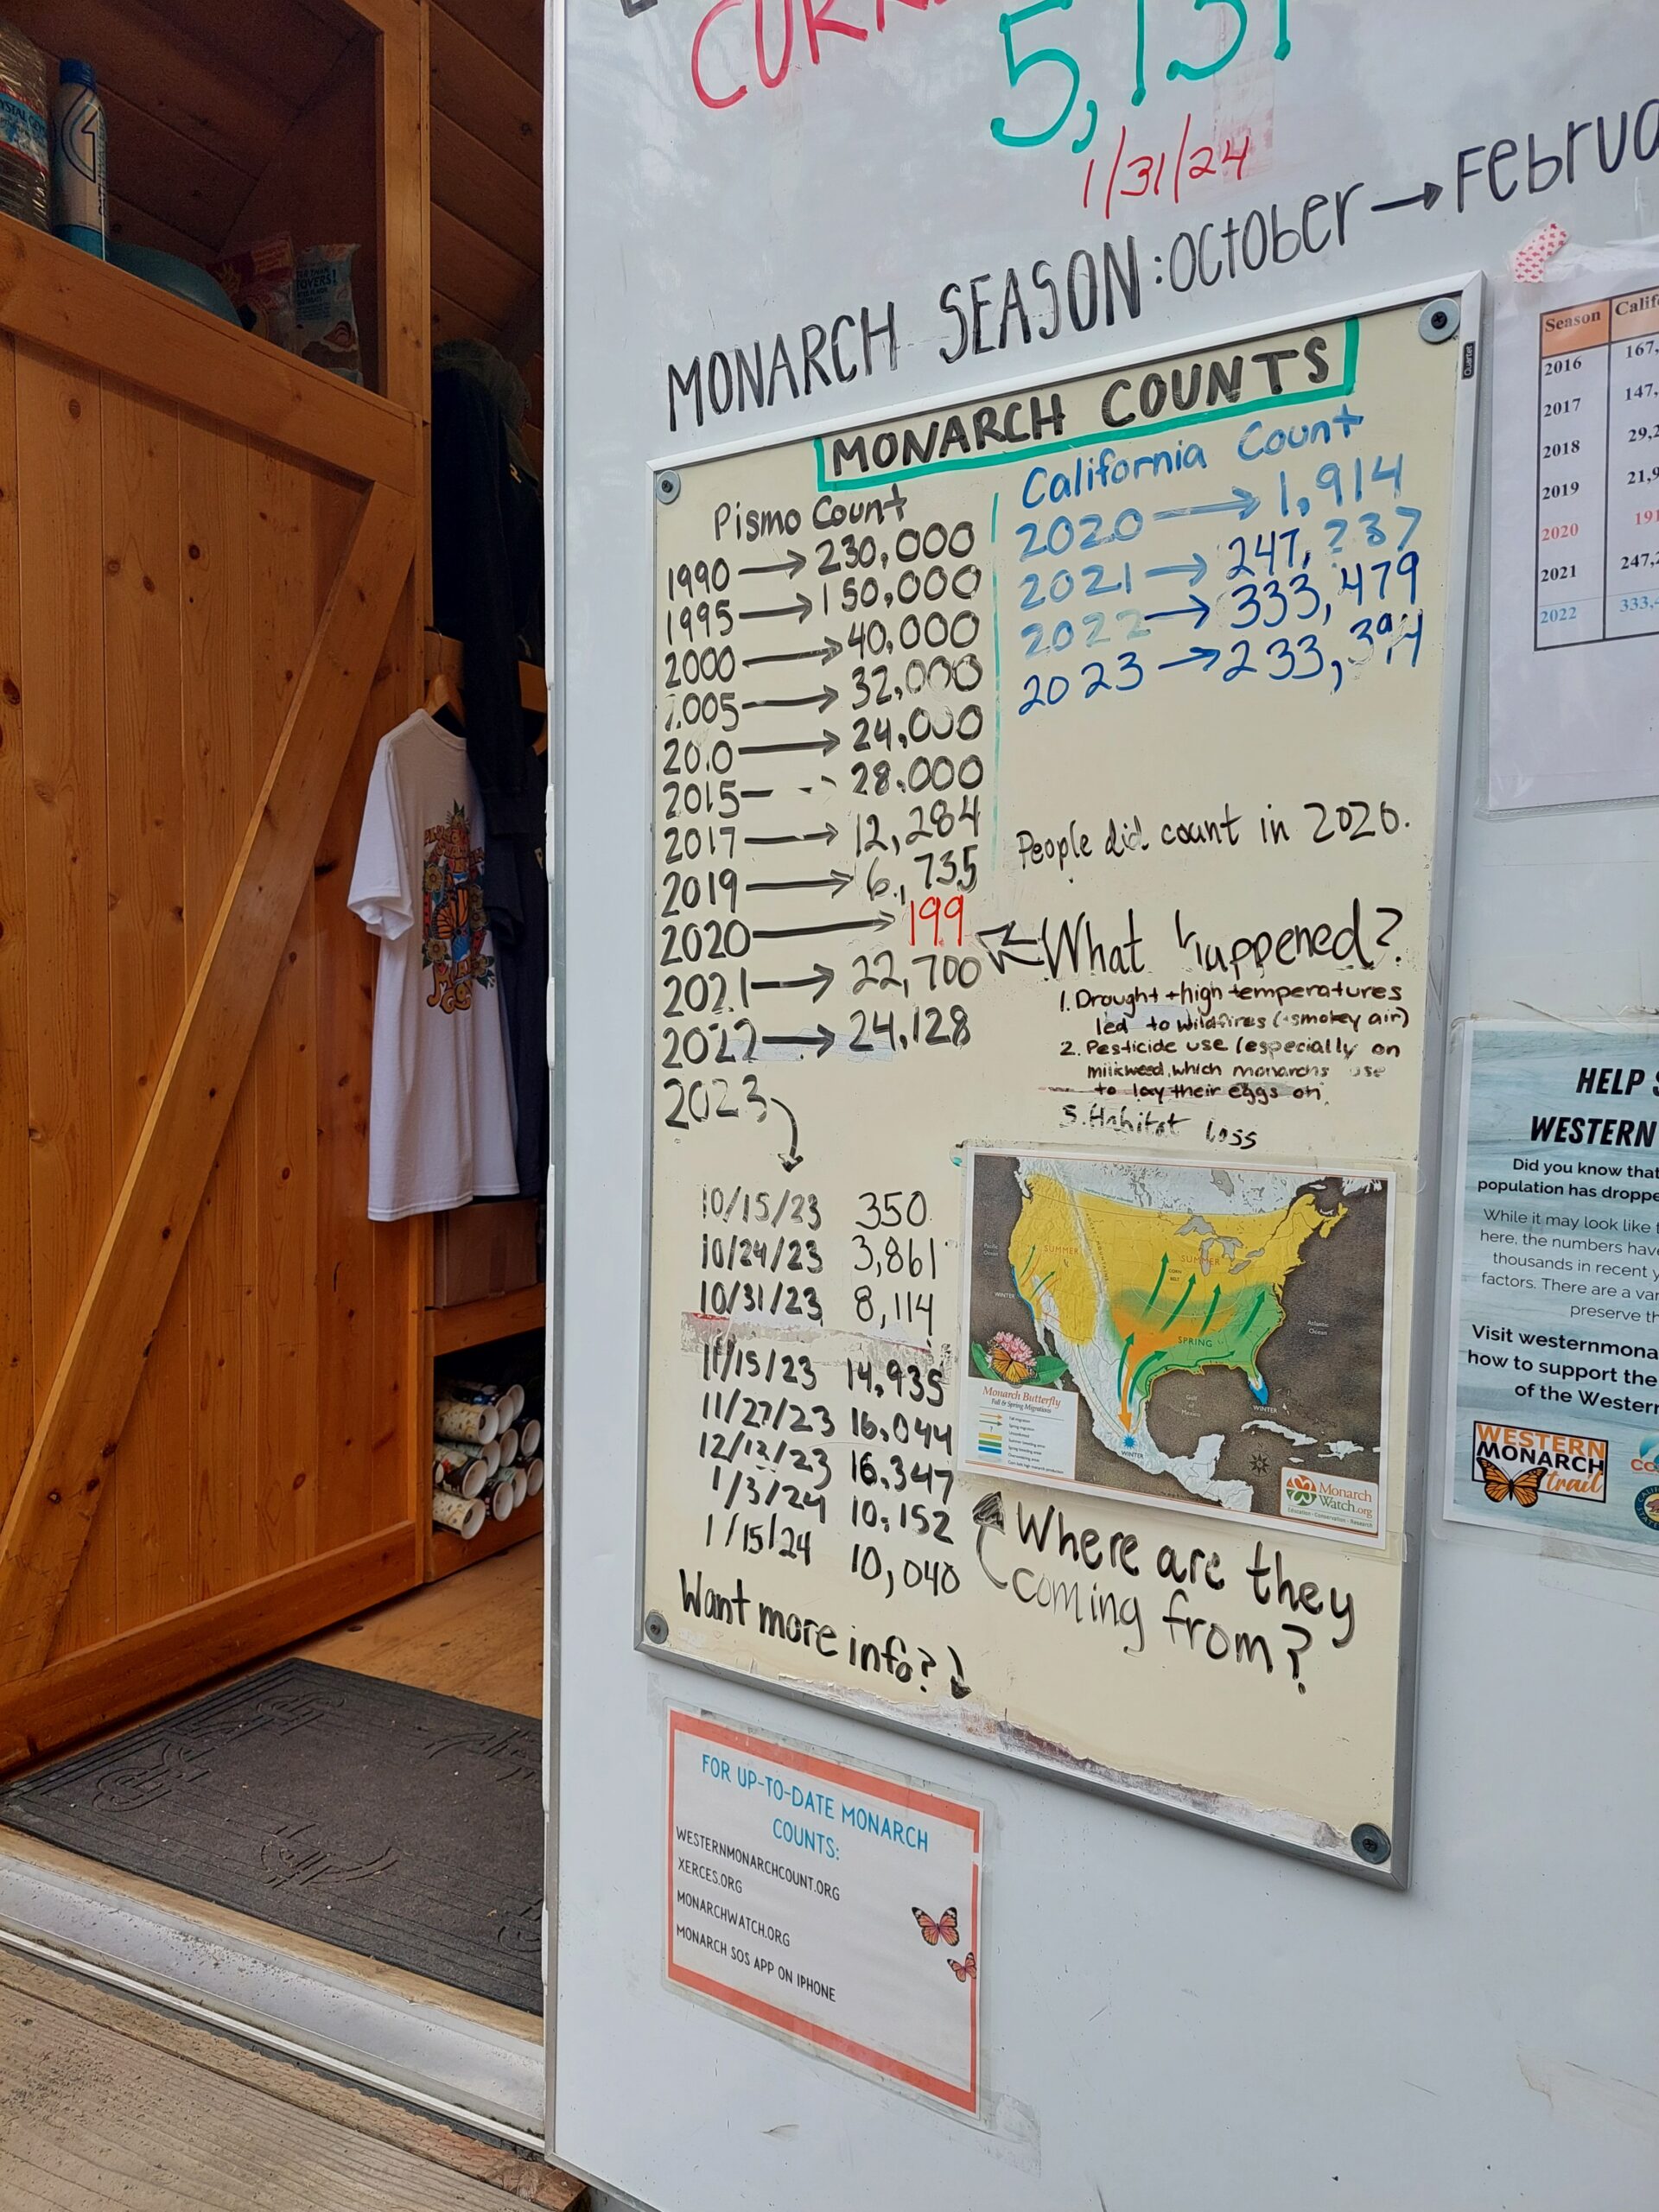 5,131
1/31/24
MONARCH SEASON: OCTOBER → FEBRUA
MONARCH COUNTS
Pismo Count
1990 → 230,000
1995 → 150,000
2000 → 40,000
2005 → 32,000
20.0 → 24,000
2015 - - - 28,000
2017 → 12,284
2019 → 6,735
2020 → 199
2021 → 22,700
2022 → 24,128
2023
10/15/23 350
10/24/23 3,861
10/31/23 8,114
11/15/23 14,935
11/27/23 16,044
12/12/23 16,347
1/3/24 10,152
1/15/24 10,040
Want more info?
California Count
2020 → 1,914
2021 → 247,237
2022 → 333,479
2023 → 233,394
People did count in 2020.
What happened?
1. Drought + high temperatures
led to wildfires (+smokey air)
2. Pesticide use (especially on
milkweed, which monarchs use
to lay their eggs on.
3. Habitat loss
SUMMER
SUMMER
CORN
BELT
SPRING
WINTER
WINTER
WINTER
Pacific
Ocean
Atlantic
Ocean
Gulf
of
Mexico
Monarch Butterfly
Fall & Spring Migrations
Monarch
Watch.org
Education • Conservation • Research
Where are they
coming from?
FOR UP-TO-DATE MONARCH
COUNTS:
WESTERNMONARCHCOUNT.ORG
XERCES.ORG
MONARCHWATCH.ORG
MONARCH SOS APP ON IPHONE
Season Calif
2016 167,
2017 147,
2018 29,2
2019 21,9
2020 191
2021 247,2
2022 333,4
HELP S
WESTERN
Did you know that
population has droppe
While it may look like t
here, the numbers have
thousands in recent y
factors. There are a var
preserve th
Visit westernmona
how to support the
of the Western
WESTERN
MONARCH
trail
Quartet